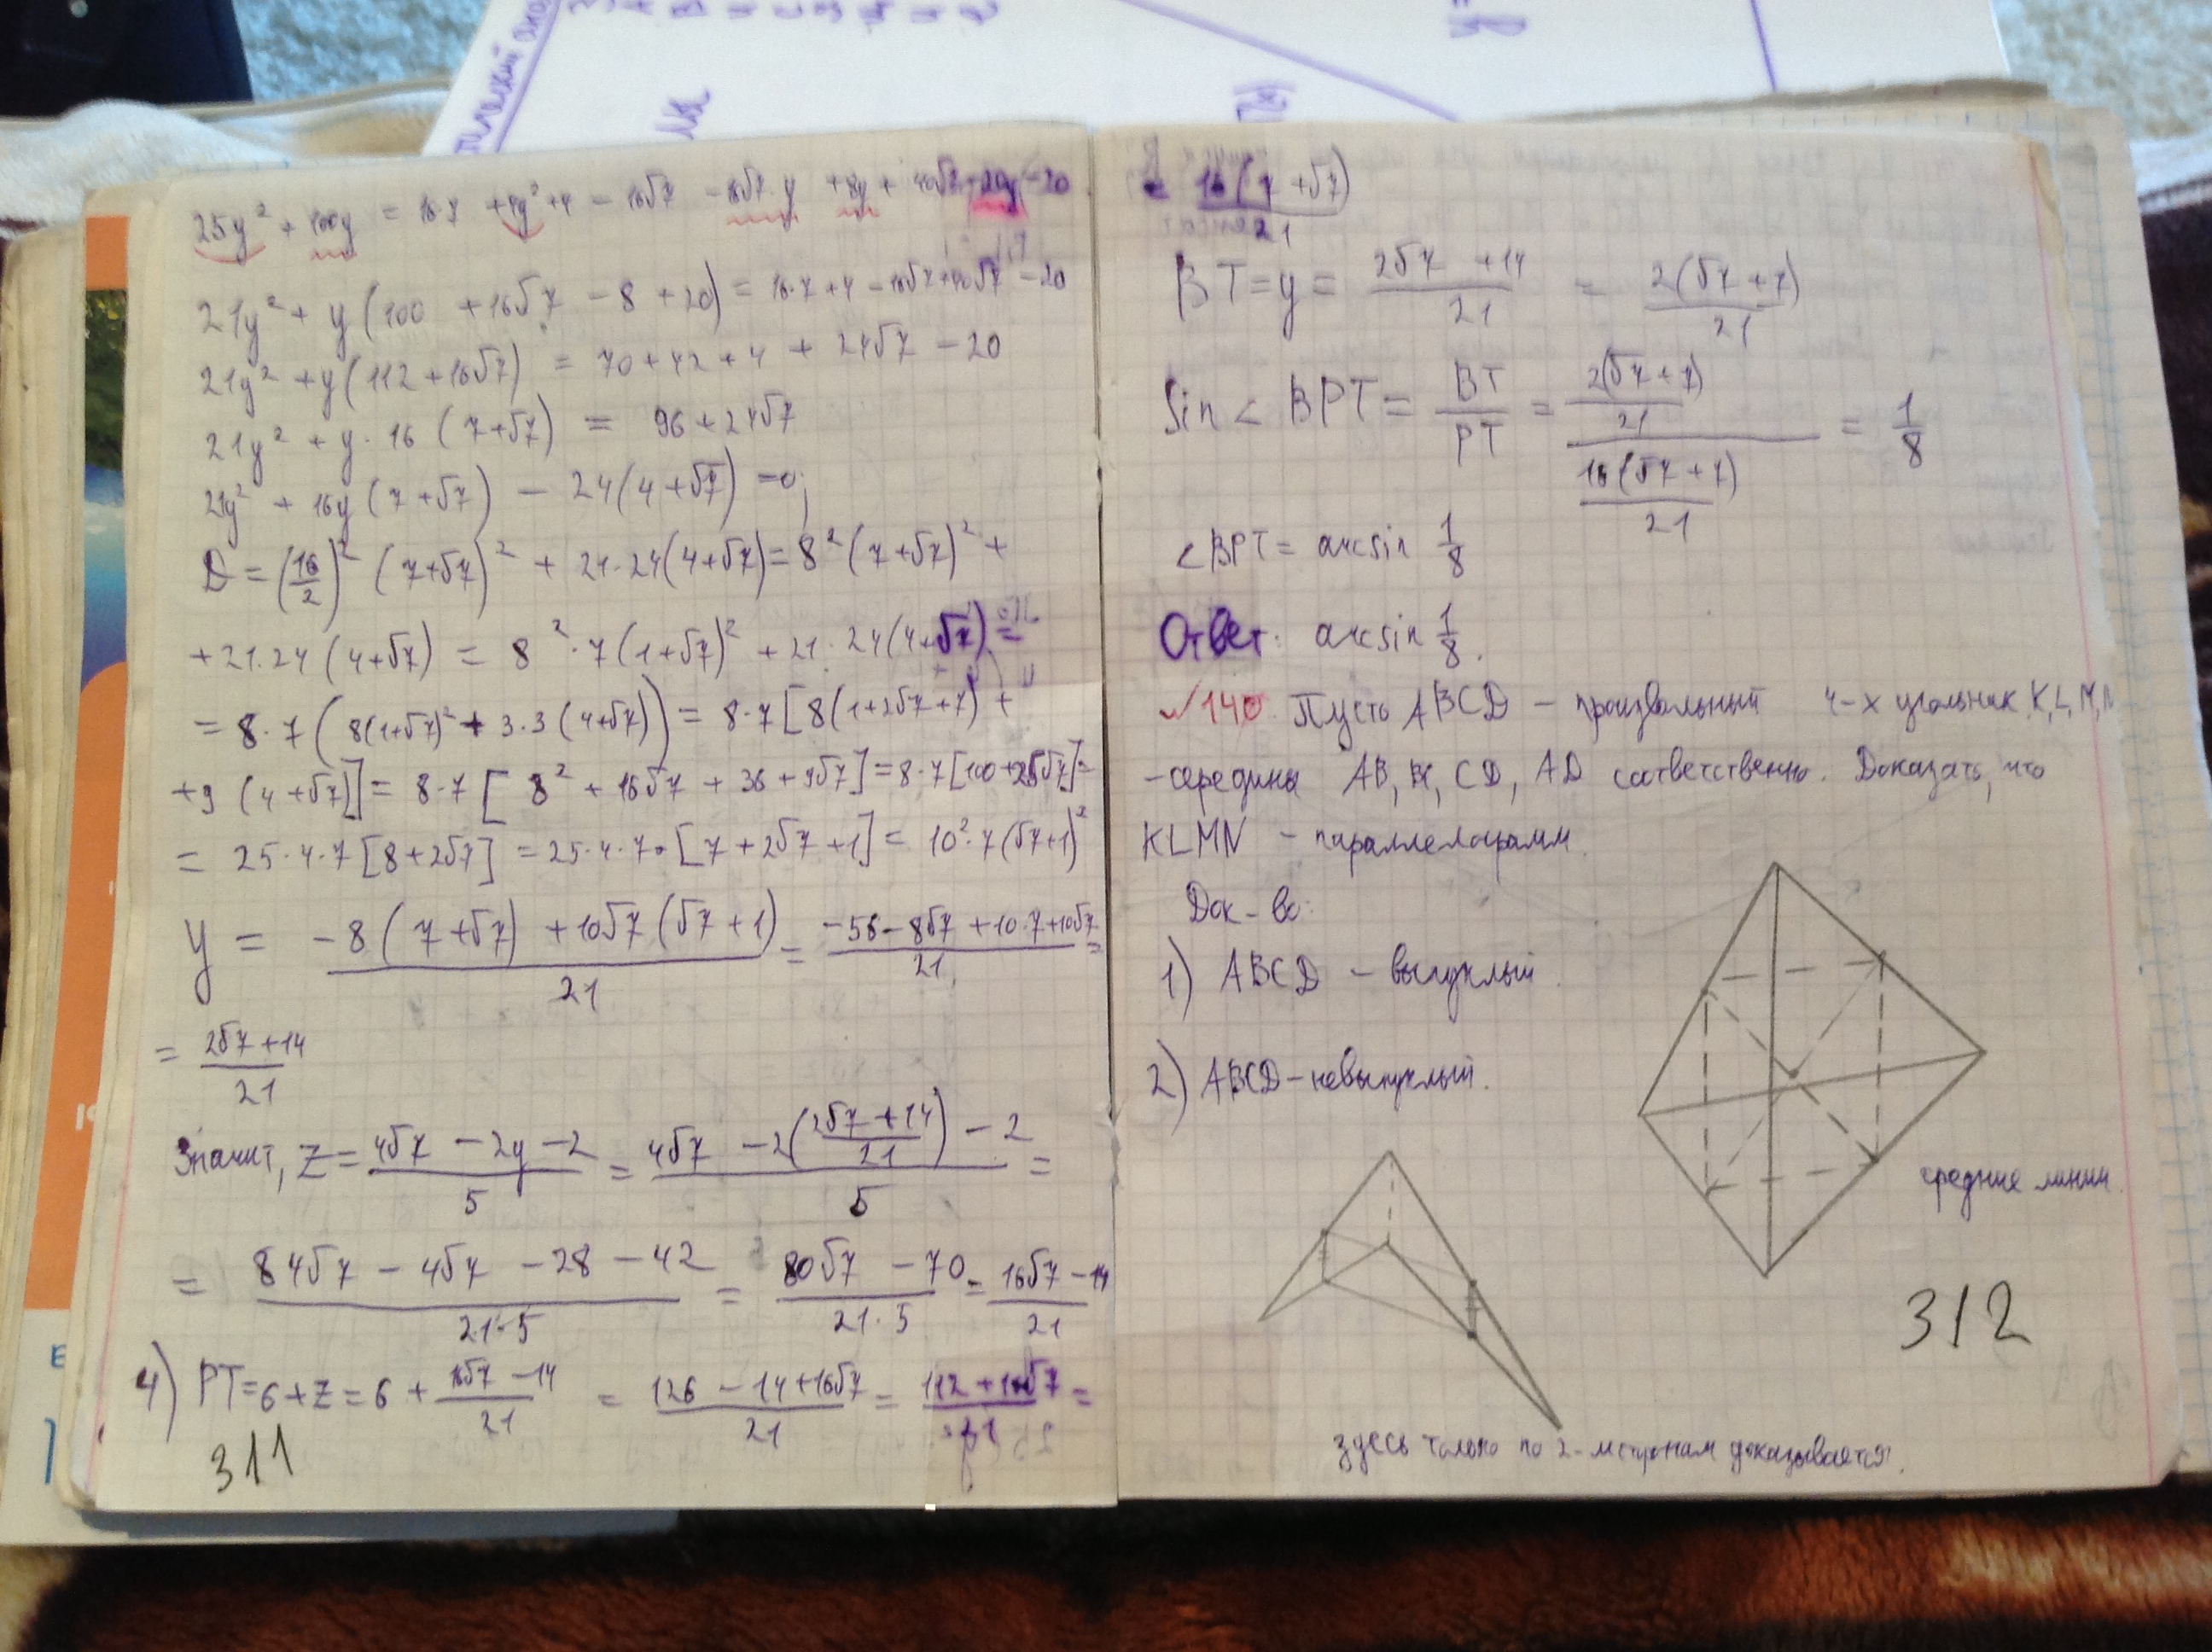 25y² + 100y = 16·7 + 4y² + 4 - 16√7 - 16√7·y + 8y + 40√7 - 20y - 20
21y² + y(100 + 16√7 - 8 + 20) = 16·7 + 4 - 16√7 + 40√7 - 20
21y² + y(112 + 16√7) = 70 + 42 + 4 + 24√7 - 20
21y² + y·16(7+√7) = 96 + 24√7
21y² + 16y(7+√7) - 24(4+√7) = 0;
D = (16/2)² (7+√7)² + 21·24(4+√7) = 8²(7+√7)² +
+21.24(4+√7) = 8²·7(1+√7)² + 21·24(4+√7) =
= 8·7(8(1+√7)² + 3·3(4+√7)) = 8·7[8(1+2√7+7) +
+9(4+√7)] = 8·7[8² + 16√7 + 36 + 9√7] = 8·7[100+25√7] =
= 25·4·7[8+2√7] = 25·4·7·[7+2√7+1] = 10²·7(√7+1)²
y = (-8(7+√7) + 10√7(√7+1))/21 = (-56 - 8√7 + 10·7 + 10√7)/21 =
= (2√7+14)/21
Значит, z = (4√7 - 2y - 2)/5 = (4√7 - 2((2√7+14)/21) - 2)/5 =
= (84√7 - 4√7 - 28 - 42)/(21·5) = (80√7 - 70)/(21·5) = (16√7 - 14)/21
4) PT = 6+z = 6 + (16√7 - 14)/21 = (126 - 14 + 16√7)/21 = (112 + 16√7)/21 =
311
= 16(7+√7)/21
BT = y = (2√7 + 14)/21 = 2(√7+7)/21
Sin < BPT = BT/PT = (2(√7+7)/21)/(16(√7+7)/21) = 1/8
< BPT = arcsin 1/8
Ответ: arcsin 1/8.
√140. Пусть ABCD - произвольный 4-х угольник K,L,M,N
-середины AB, BC, CD, AD соответственно. Доказать, что
KLMN - параллелограмм.
Док-во:
1) ABCD - выпуклый.
2) ABCD - невыпуклый.
средние линии.
312
здесь только по 2-м сторонам доказывается.